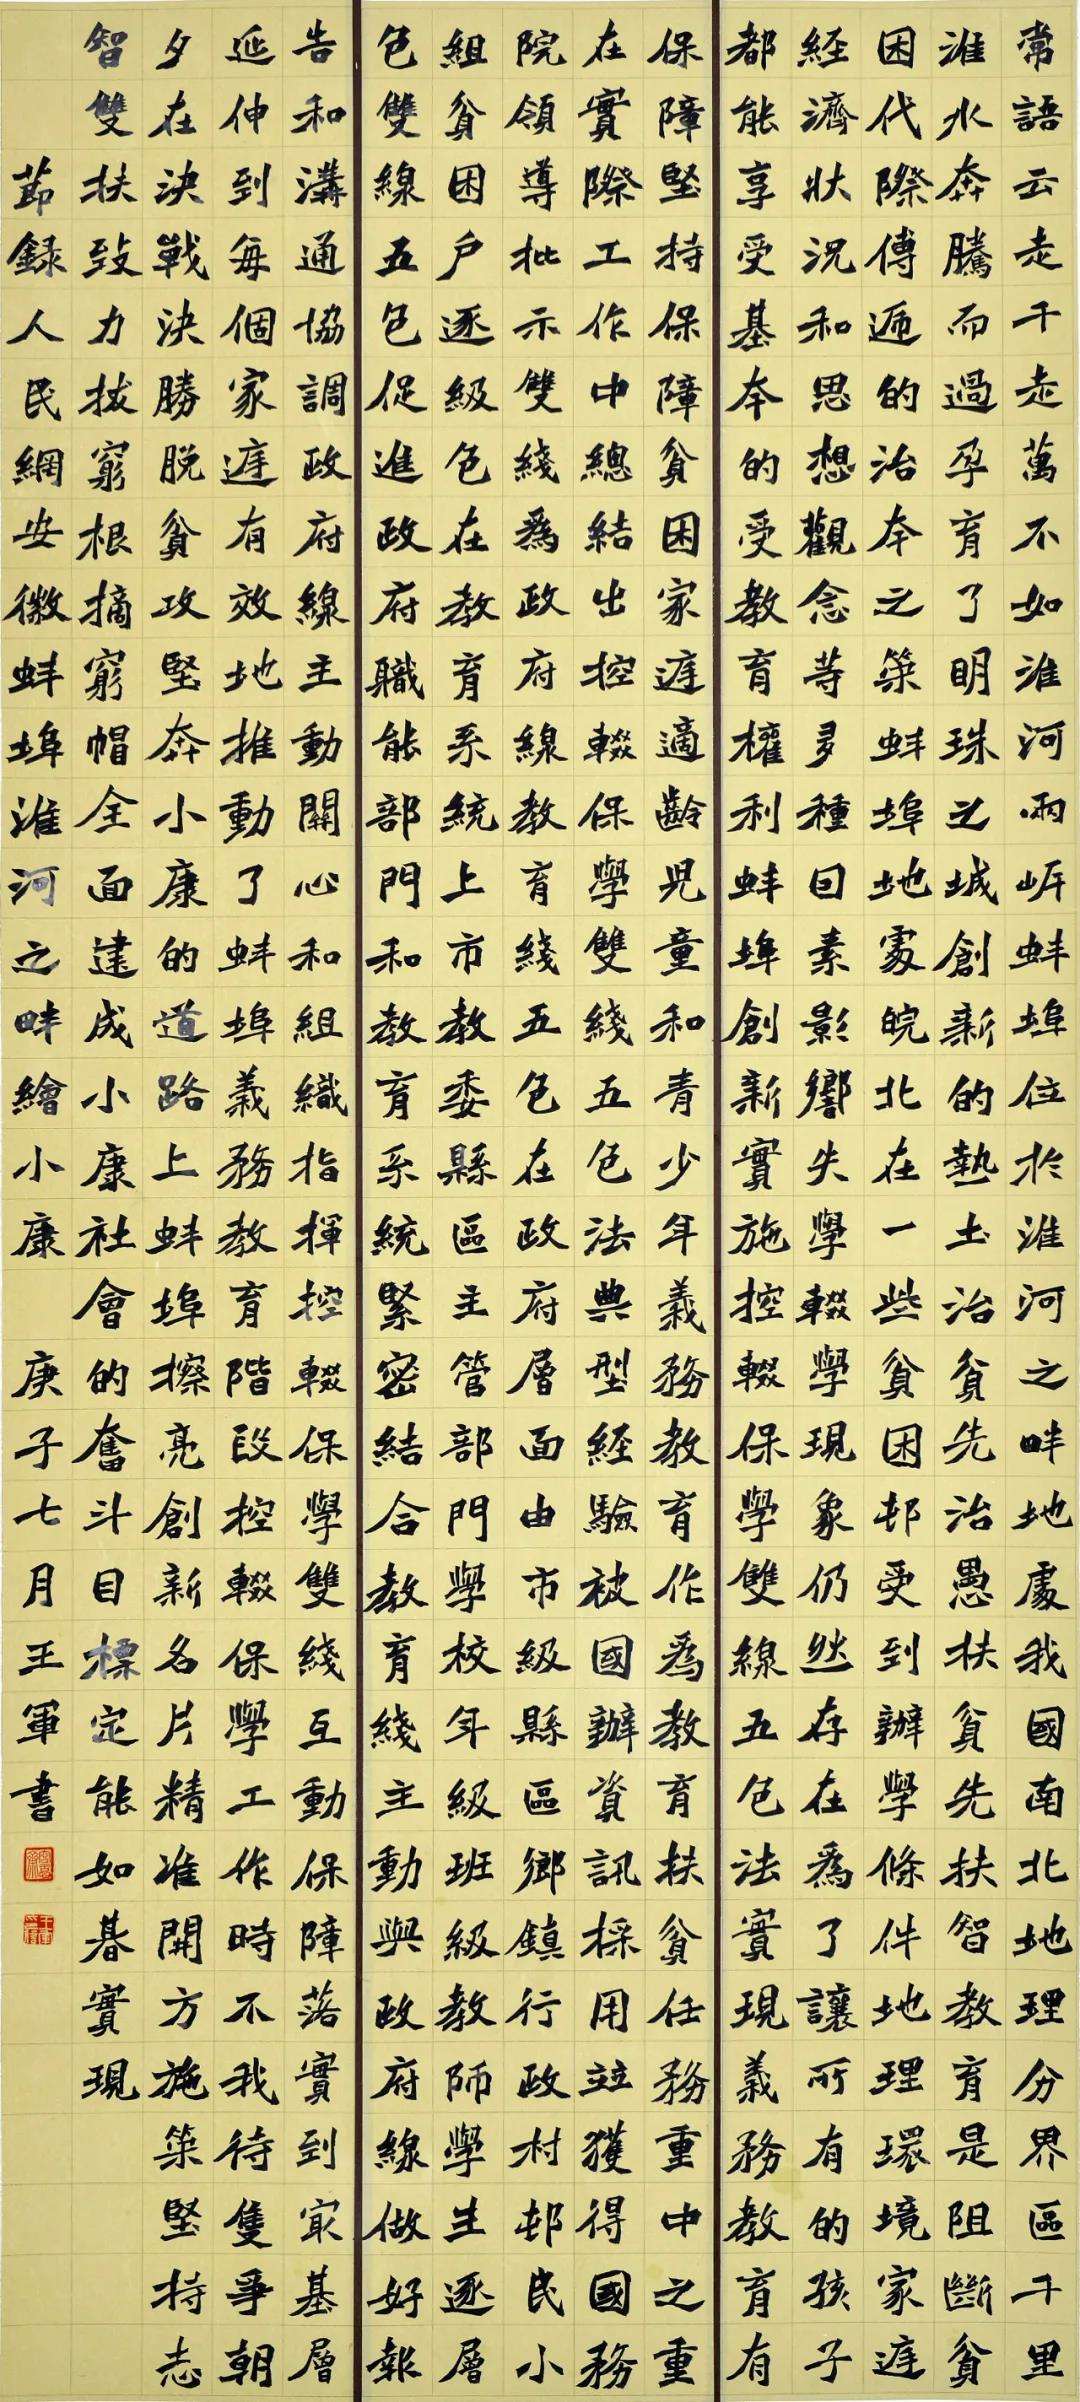 常語云走千走萬不如淮河兩岍蚌埠位於淮河之畔地處我國南北地理分界區千里
淮水奔騰而過孕育了明珠之城創新的熱土治貧先治愚扶貧先扶智教育是阻斷貧
困代際傳遞的治本之策蚌埠地處皖北在一些貧困邨受到辦學條件地理環境家庭
經濟狀況和思想觀念等多種因素影響失學輟學現象仍然存在為了讓所有的孩子
都能享受基本的受教育權利蚌埠創新實施控輟保學雙線五包法實現義務教育有
保障堅持保障貧困家庭適齡兒童和青少年義務教育作為教育扶貧任務重中之重
在實際工作中總結出控輟保學雙綫五包法典型經驗被國辦資訊採用並獲得國務
院領導批示雙綫為政府線教育綫五包在政府層面由市級縣區鄉鎮行政村邨民小
組貧困户逐級包在教育系統上市教委縣區主管部門學校年級班級教師學生逐層
包雙線五包促進政府職能部門和教育系統緊密結合教育綫主動與政府線做好報
告和溝通協調政府線主動關心和組織指揮控輟保學雙綫互動保障落實到最基層
延伸到每個家庭有效地推動了蚌埠義務教育階段控輟保學工作時不我待隻爭朝
夕在決戰決勝脫貧攻堅奔小康的道路上蚌埠擦亮創新名片精准開方施策堅持志
智雙扶致力拔窮根摘窮帽全面建成小康社會的奮斗目標定能如碁實現
節錄人民網安徽蚌埠淮河之畔繪小康 庚子七月王軍書